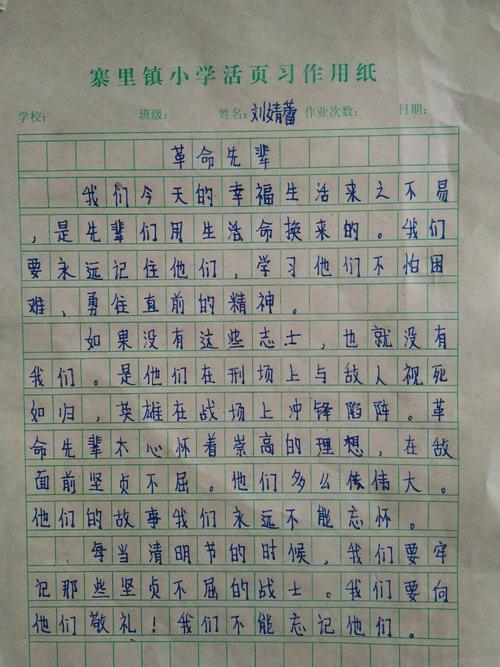 寨里镇小学活页习作用纸
学校: 班级: 姓名:刘婧蕾 作业次数: 日期:
革命先辈
我们今天的幸福生活来之不易
,是先辈们用生活命换来的。我们
要永远记住他们,学习他们不怕困
难,勇住直前的精神。
如果没有这些志士,也就没有
我们。是他们在刑场上与敌人视死
如归,英雄在战场上冲锋陷阵。革
命先辈木心怀着崇高的理想,在敌
面前坚贞不屈。他们多么伟大。
他们的故事我们永远不能忘怀。
每当清明节的时候,我们要牢
记那些坚贞不屈的战士。我们要向
他们敬礼!我们不能忘记他们。